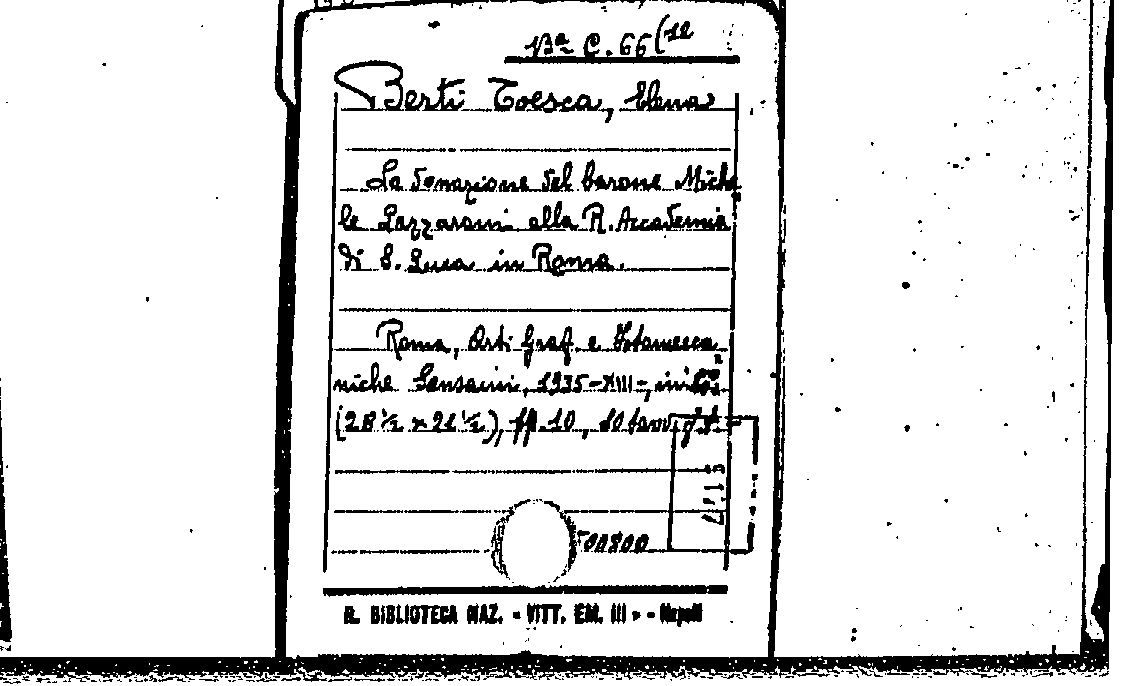 Bª C. 66(12
Berti Toesca, Elena
La donazione del barone Miche
le Lazzaroni alla R. Accademia
di S. Luca in Roma.
Roma, Arti Graf. e Fotomecca
niche Sansaini, 1935-XIII-, in
(28 ½ x 21 ½), pp. 10, 50 tavv.
500800
R. BIBLIOTECA NAZ. « VITT. EM. III » - Napoli